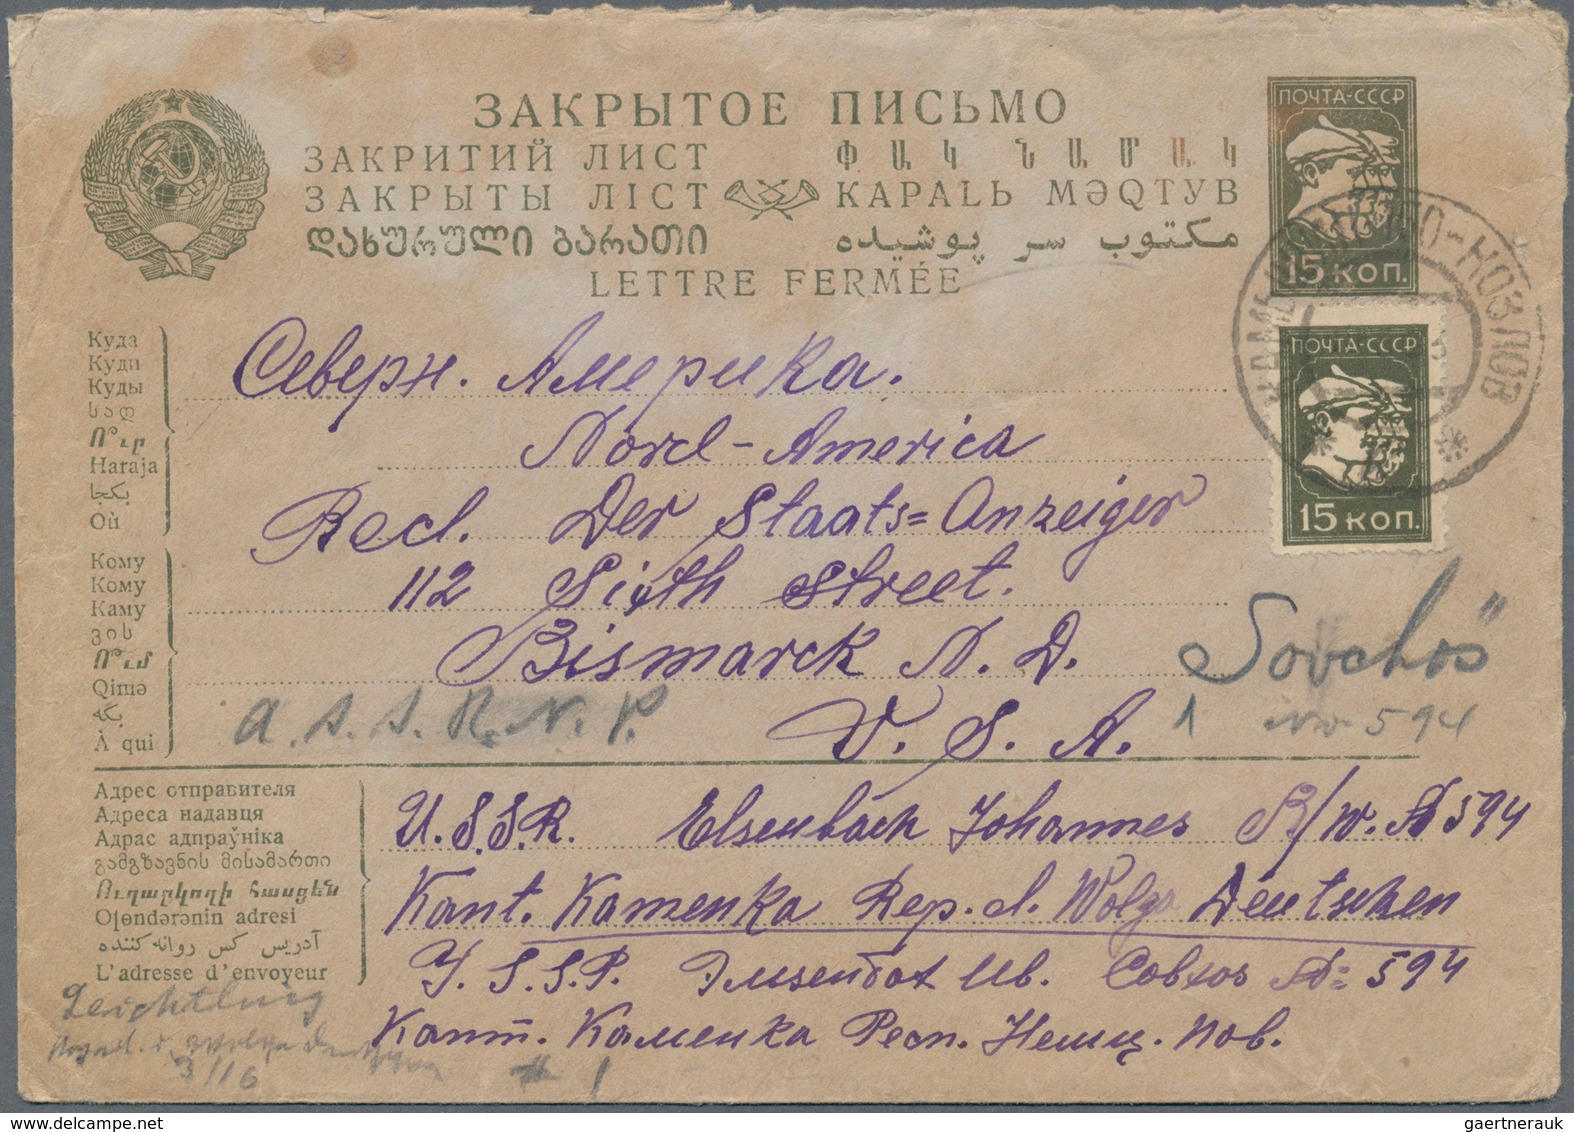 ЗАКРЫТОЕ ПИСЬМО
ЗАКРИТИЙ ЛИСТ
ФԱԿ ՆԱՄԱԿ
ЗАКРЫТЫ ЛІСТ
KAPALЬ MƏQTYB
ᲓᲐᲮᲣᲠᲣᲚᲘ ᲑᲐᲠᲐᲗᲘ
مكتوب سر پوشيده
LETTRE FERMÉE
ПОЧТА-СССР
15 КОП.
ПОЧТА-СССР
15 КОП.
Куда
Куди
Куды
სად
Ո՞ւր
Haraja
بكجا
Où
Северн. Америка.
Nord-America
Red. Der Staats=Anzeiger
112 Sixth Street.
Bismarck N. D.
U. S. A.
Кому
Кому
Каму
ვის
Ո՞ւմ
Qimə
بكه
À qui
A. S. S. R. N. P.
Sovchos"
1 No 594
Адрес отправителя
Адреса надавця
Адрас адпраўніка
გამგზავნის მისამართი
Ուղարկողի հասցեն
Oƪɵndərənin adresi
آدريس كس روانه كننده
L'adresse d'envoyeur
U.S.S.R. Elsenbach Johannes S/w. № 594
Kant. Kamenka Rep. d. Wolga Deutschen
У. S.S.P. Элизенбах Ив. Совхоз №= 594
Кант. Каменка Респ. Немц. Пов.
Leichtling
3/16
# 1
gaertnerauk